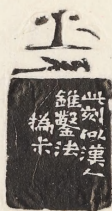 此刻似漢人
錐鑿法
撝尗